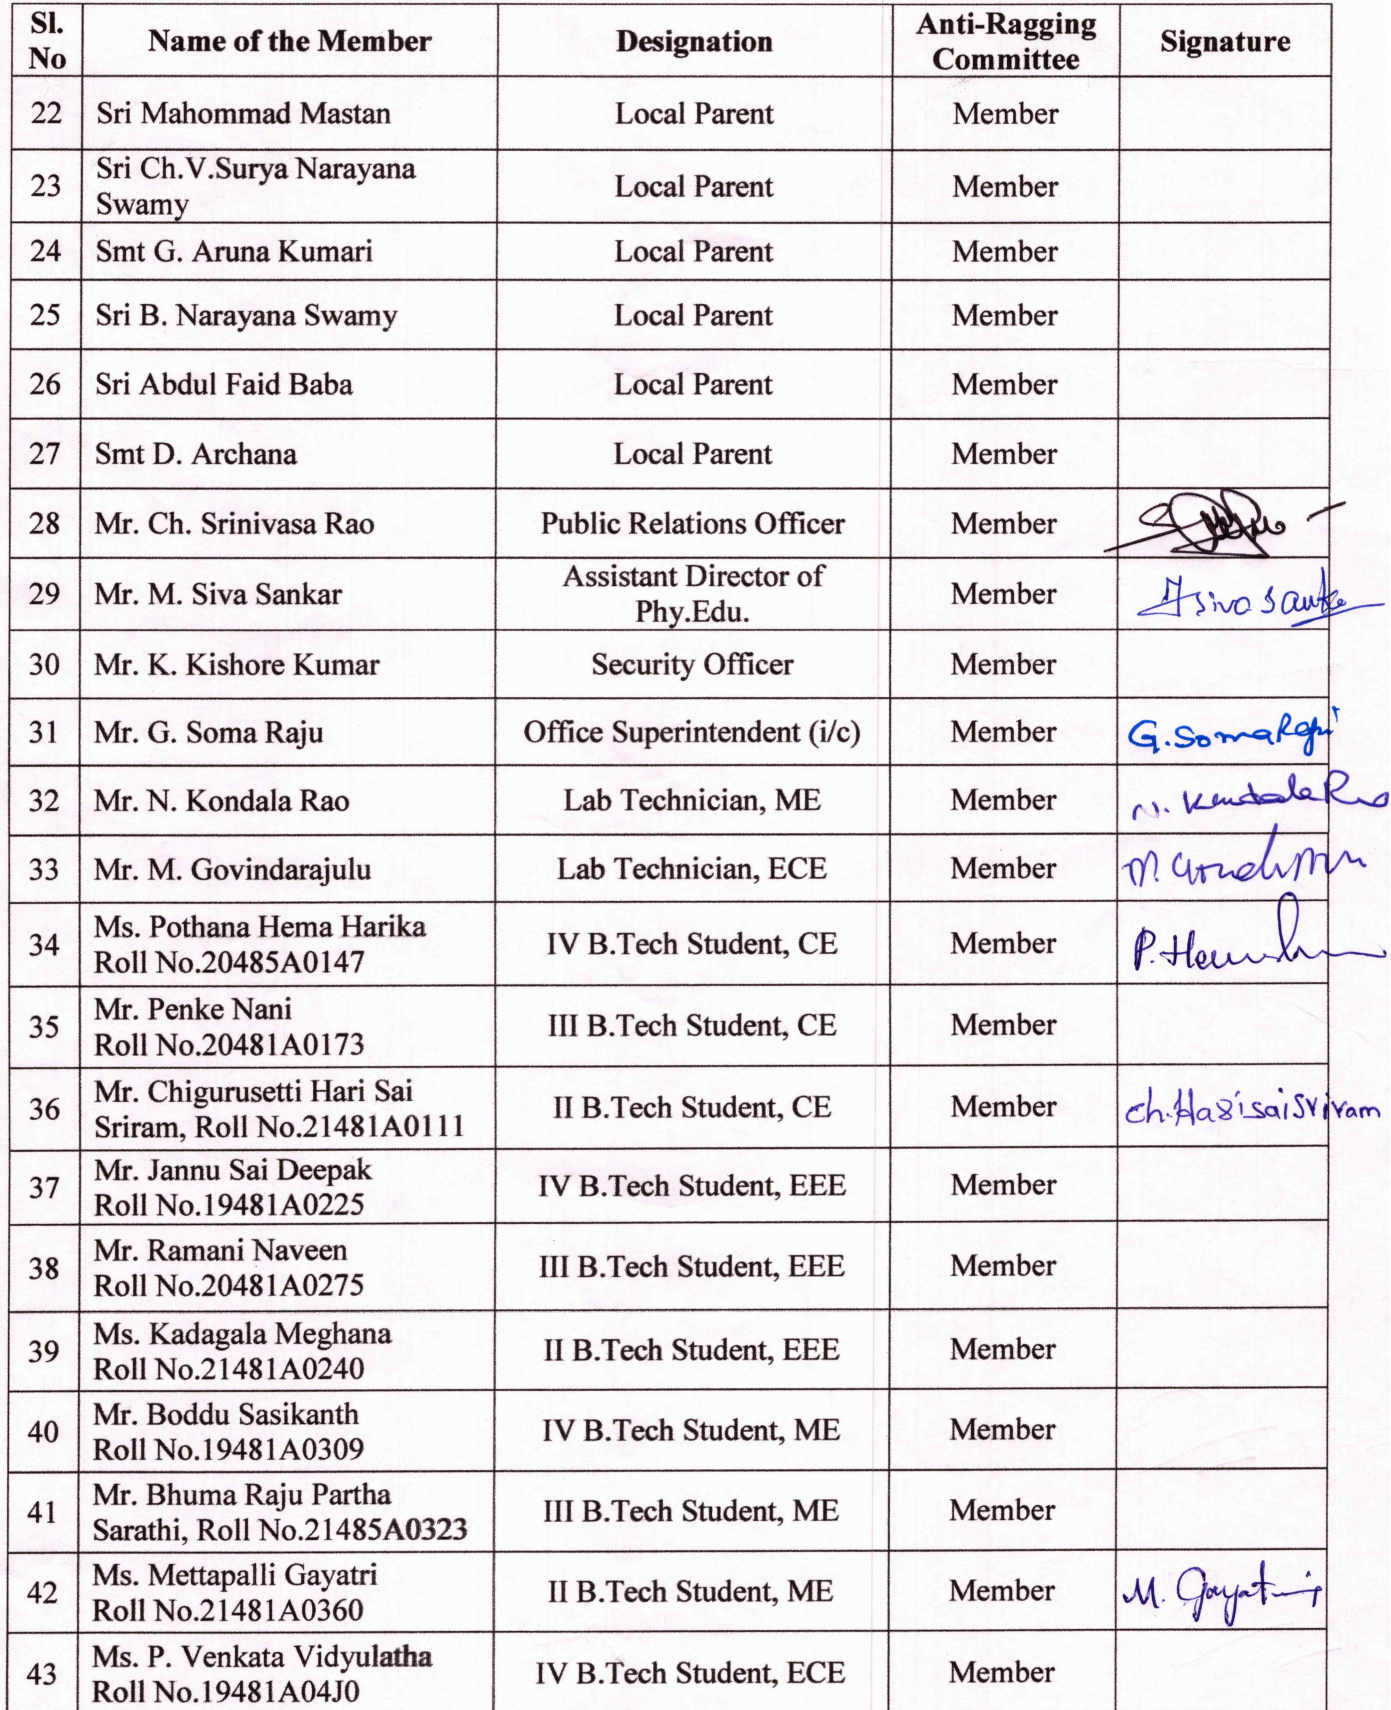 Sl. No Name of the Member Designation Anti-Ragging Committee Signature
22 Sri Mahommad Mastan Local Parent Member
23 Sri Ch.V.Surya Narayana Swamy Local Parent Member
24 Smt G. Aruna Kumari Local Parent Member
25 Sri B. Narayana Swamy Local Parent Member
26 Sri Abdul Faid Baba Local Parent Member
27 Smt D. Archana Local Parent Member
28 Mr. Ch. Srinivasa Rao Public Relations Officer Member
29 Mr. M. Siva Sankar Assistant Director of Phy.Edu. Member
30 Mr. K. Kishore Kumar Security Officer Member
31 Mr. G. Soma Raju Office Superintendent (i/c) Member G. Soma Raju
32 Mr. N. Kondala Rao Lab Technician, ME Member N. Kondala Rao
33 Mr. M. Govindarajulu Lab Technician, ECE Member
34 Ms. Pothana Hema Harika Roll No.20485A0147 IV B.Tech Student, CE Member
35 Mr. Penke Nani Roll No.20481A0173 III B.Tech Student, CE Member
36 Mr. Chigurusetti Hari Sai Sriram, Roll No.21481A0111 II B.Tech Student, CE Member Ch.Harisaisriram
37 Mr. Jannu Sai Deepak Roll No.19481A0225 IV B.Tech Student, EEE Member
38 Mr. Ramani Naveen Roll No.20481A0275 III B.Tech Student, EEE Member
39 Ms. Kadagala Meghana Roll No.21481A0240 II B.Tech Student, EEE Member
40 Mr. Boddu Sasikanth Roll No.19481A0309 IV B.Tech Student, ME Member
41 Mr. Bhuma Raju Partha Sarathi, Roll No.21485A0323 III B.Tech Student, ME Member
42 Ms. Mettapalli Gayatri Roll No.21481A0360 II B.Tech Student, ME Member M. Gayatri
43 Ms. P. Venkata Vidyulatha Roll No.19481A04J0 IV B.Tech Student, ECE Member